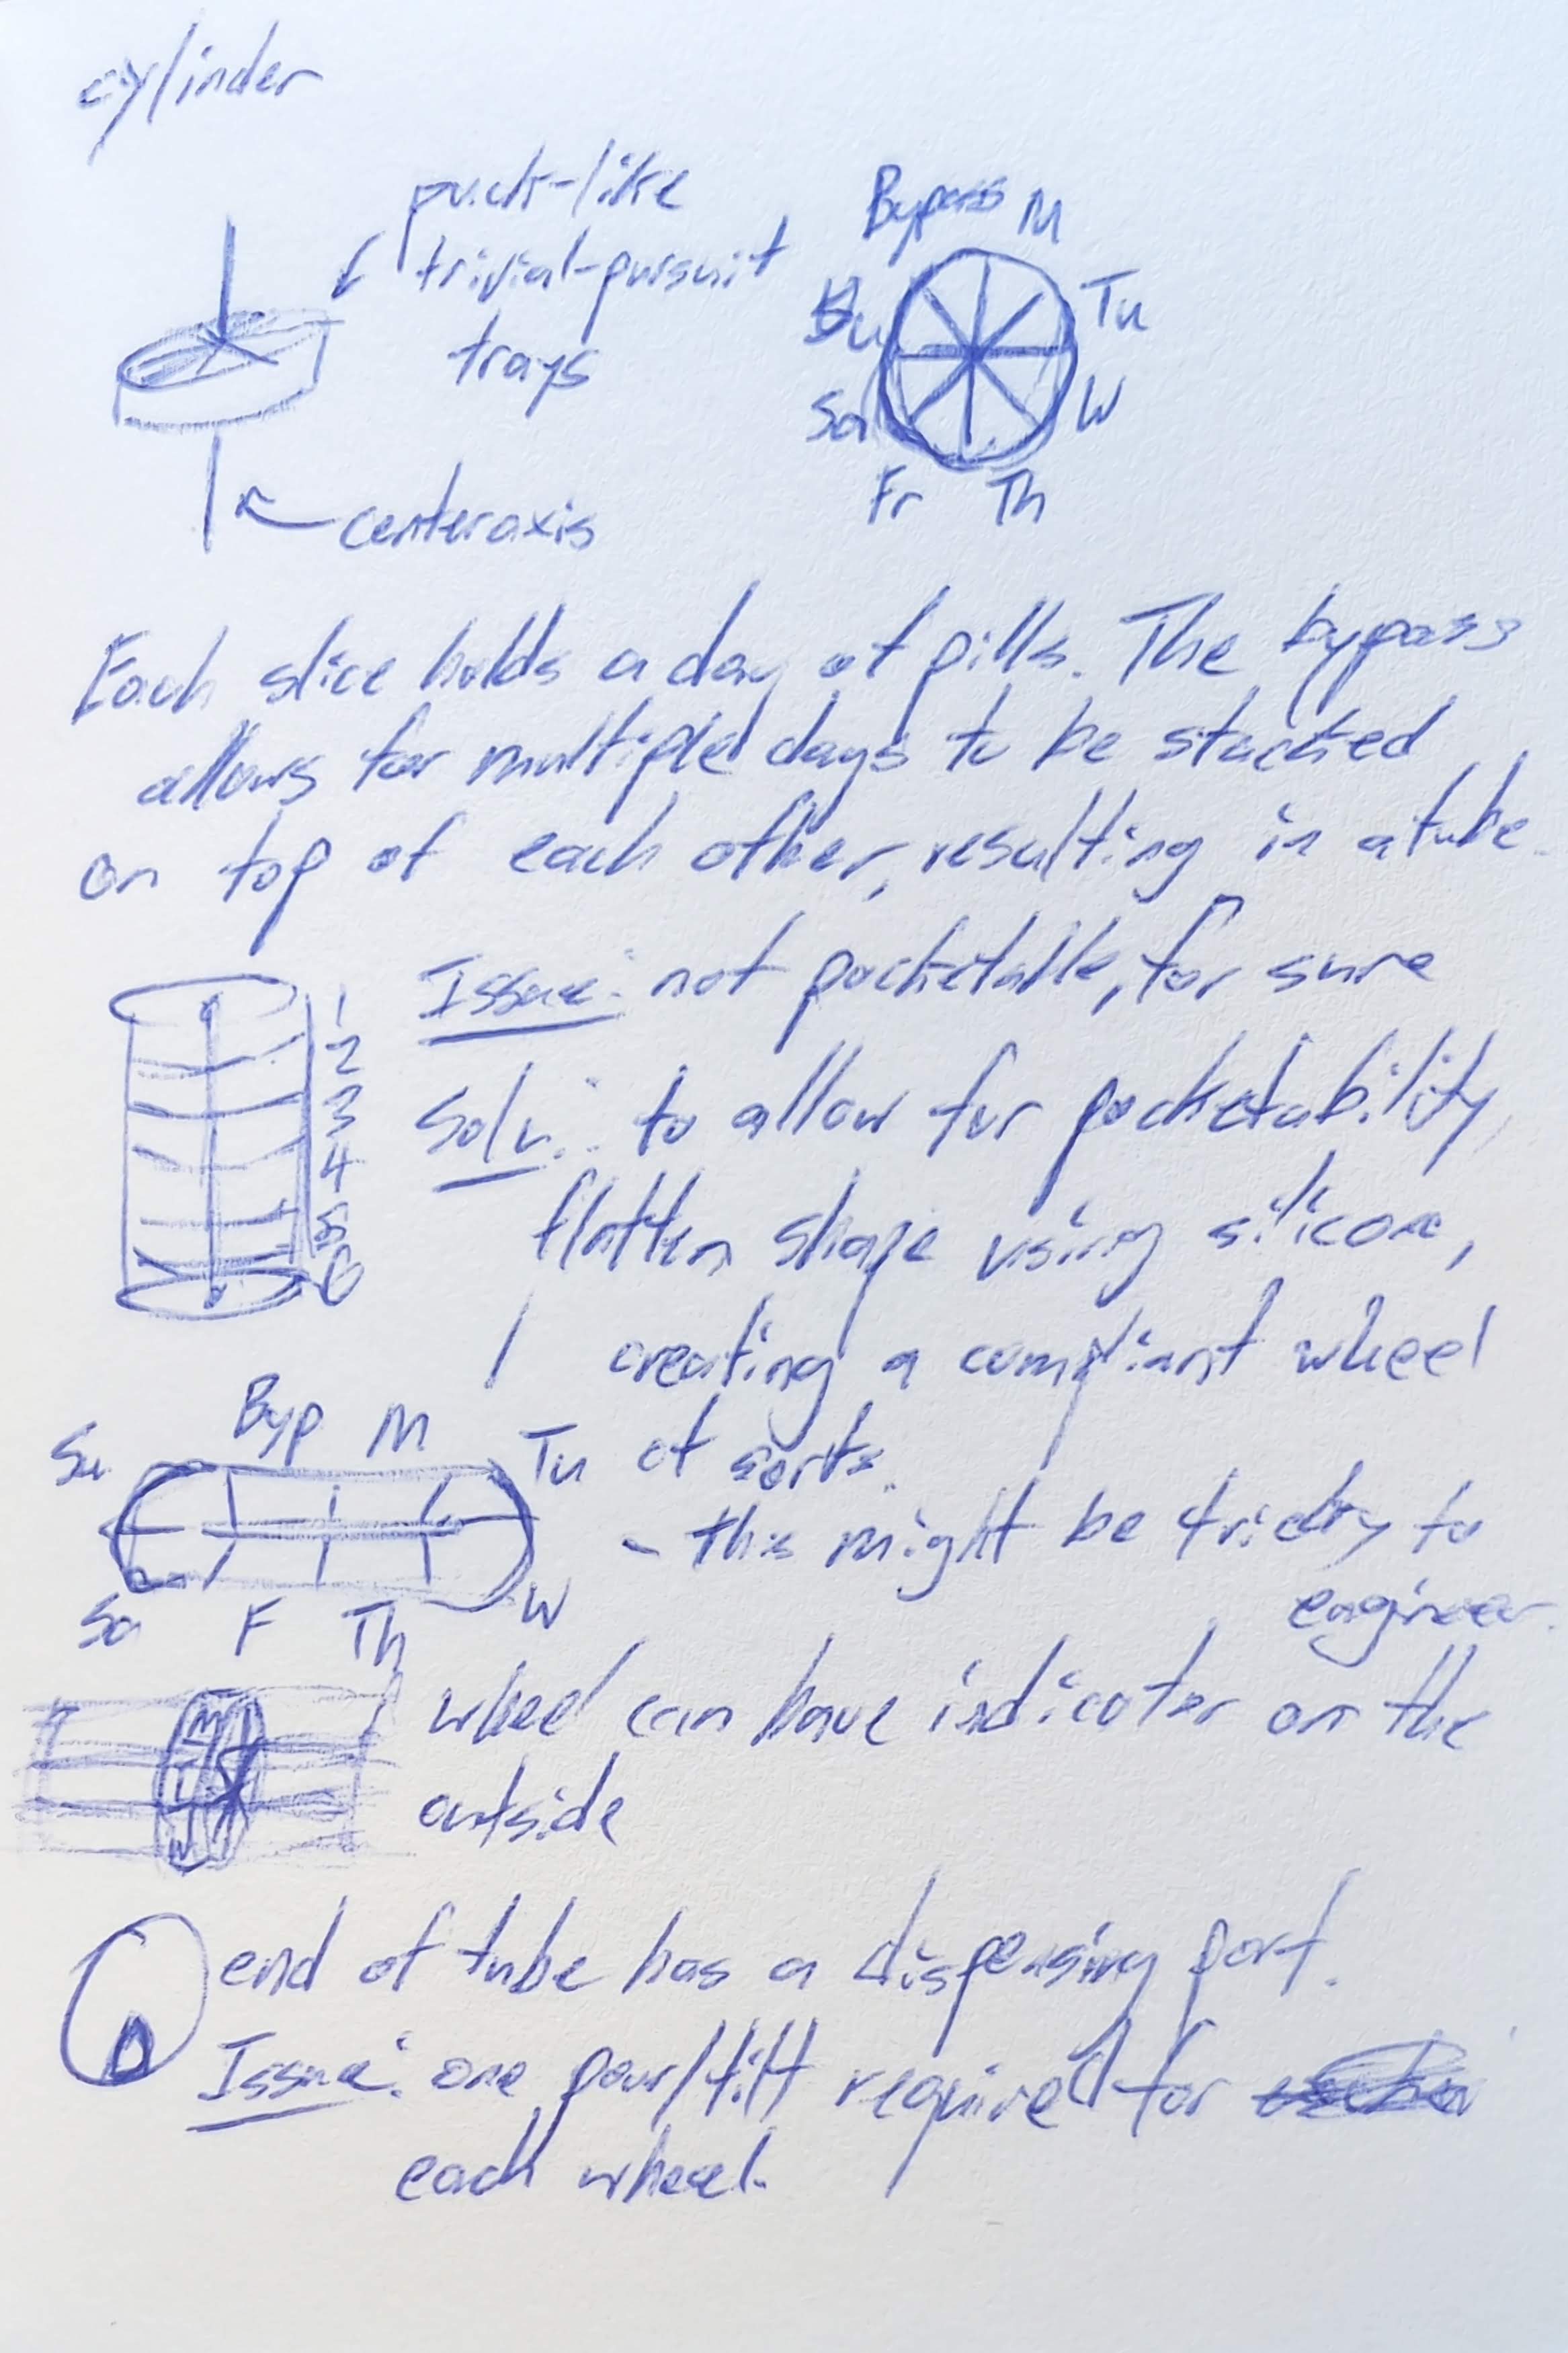 cylinder
puck-like
trivial-pursuit
trays
centeraxis
Bypass M
Su Tu
Sa W
Fr Th
Each slice holds a day of pills. The bypass
allows for multiple days to be stacked
on top of each other, resulting in a tube.
1
2
3
4
5
6
Issue: not pocketable, for sure
Solv.: to allow for pocketability,
flatten shape using silicone,
creating a compliant wheel
of sorts.
- this might be tricky to
engineer.
Su Byp M Tu
Sa F Th W
M
T
W
wheel can have indicator on the
outside
end of tube has a dispensing port.
Issue: one pour/tilt required for
each wheel.